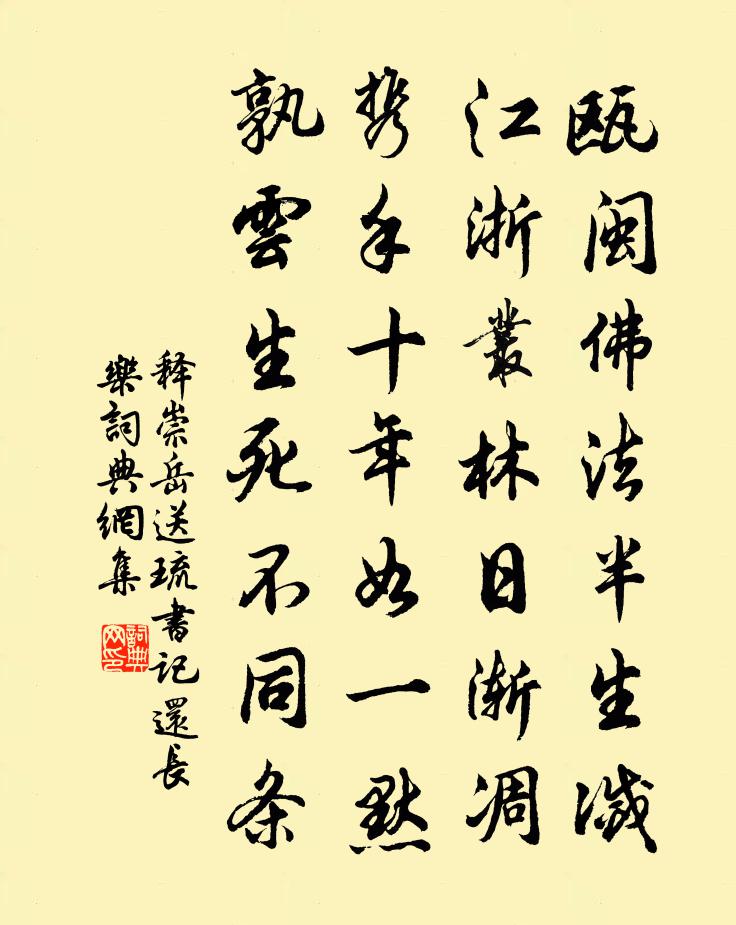 瓯闽佛法半生滅
江浙叢林日渐凋
携手十年如一默
孰雲生死不同条
释崇岳送琉書记還長
樂詞典網集
詞典網印